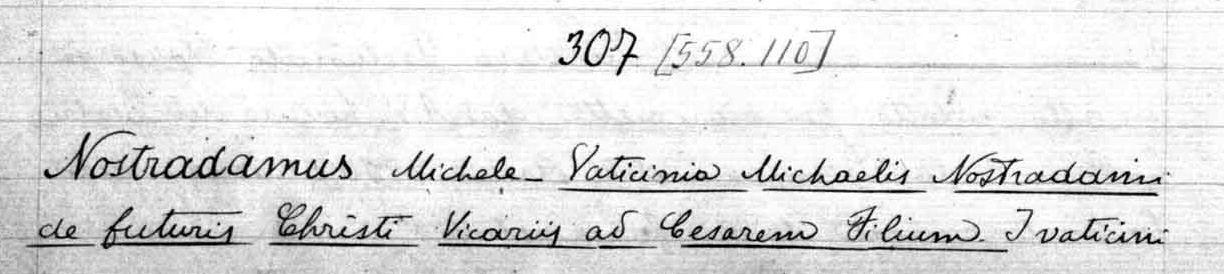 307 [558.110]
Nostradamus Michele - Vaticinia Michaelis Nostradami
de futuris Christi Vicariis ad Cesarem Filium. I vaticini